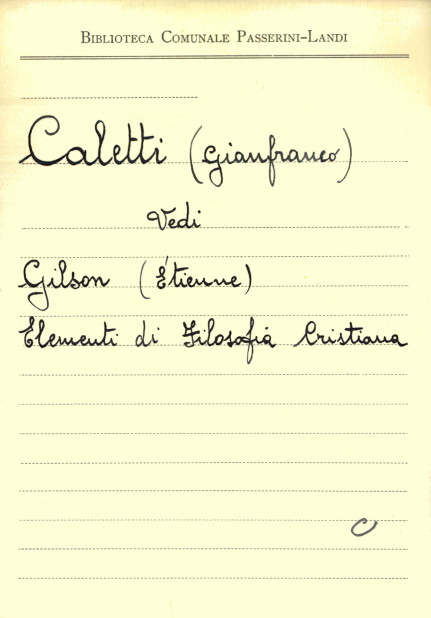 Biblioteca Comunale Passerini-Landi
Caletti (Gianfranco)
Vedi
Gilson (Étienne)
Elementi di Filosofia Cristiana
C